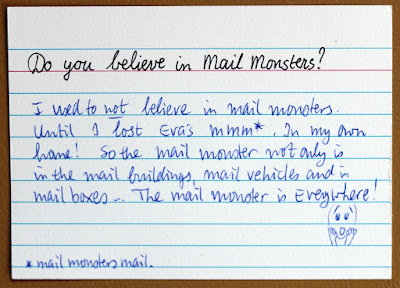 Do you believe in Mail Monsters?
I used to not believe in mail monsters.
Until I lost Eva's mmm*. In my own
home! So the mail monster not only is
in the mail buildings, mail vehicles and in
mail boxes... The mail monster is Everywhere!
* mail monsters mail.